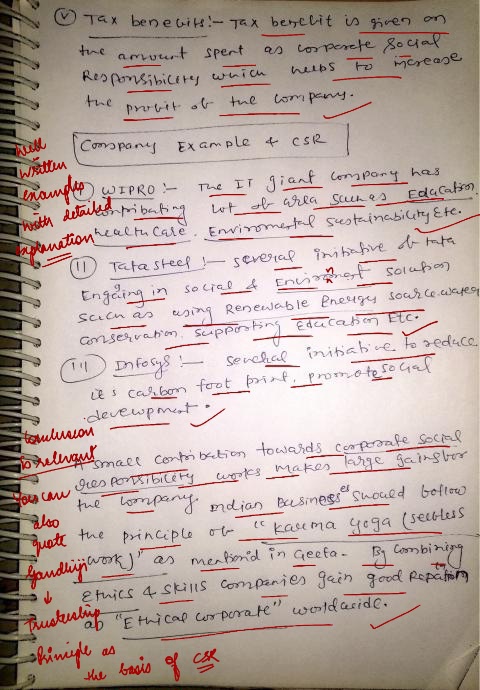 (V) Tax benefits:- Tax benefit is given on
the amount spent as corporate Social
Responsibility which helps to increase
the profit of the company.
Company Example & CSR
well
written
examples
with detailed
explanation
(I) WIPRO:- The IT giant company has
contributing lot of area such as Education,
healthcare, Enviromental Sustainability Etc.
(II) Tata steel:- Several initiative of tata
Engaing in social & Enviroment solution
such as using Renewable Energies source. water
conservation, supporting Education Etc.
(III) Infosys:- Several initiative to reduce
it's carbon foot print, promote social
development.
Conclusion
is relevant
you can
also
quote
Gandhiji
↓
Trusteeship
Principle as
the basis of CSR
A small contribution towards corporate social
responsibility works makes large gains for
the company. Indian Businesses should follow
the principle of "Karma yoga (selfless
work)" as mentiond in Geeta. By combining
Ethics & skills companies gain good Repation
as "Ethical corporate" worldwide.